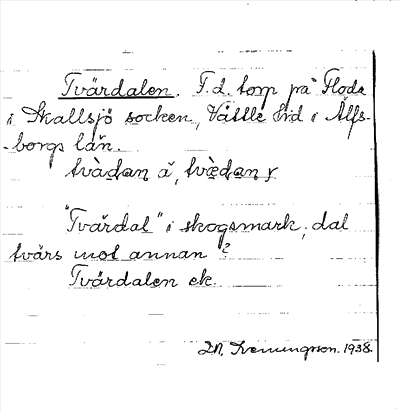 Tvärdalen. F.d. torp på Floda
i Skallsjö socken, Vättle hd i Älfs-
-borgs län.
tvàdan ä, tvædan y
"Tvärdal" i skogsmark, dal
tvärs mot annan ?
Tvärdalen ek.
Sveningson. 1938.